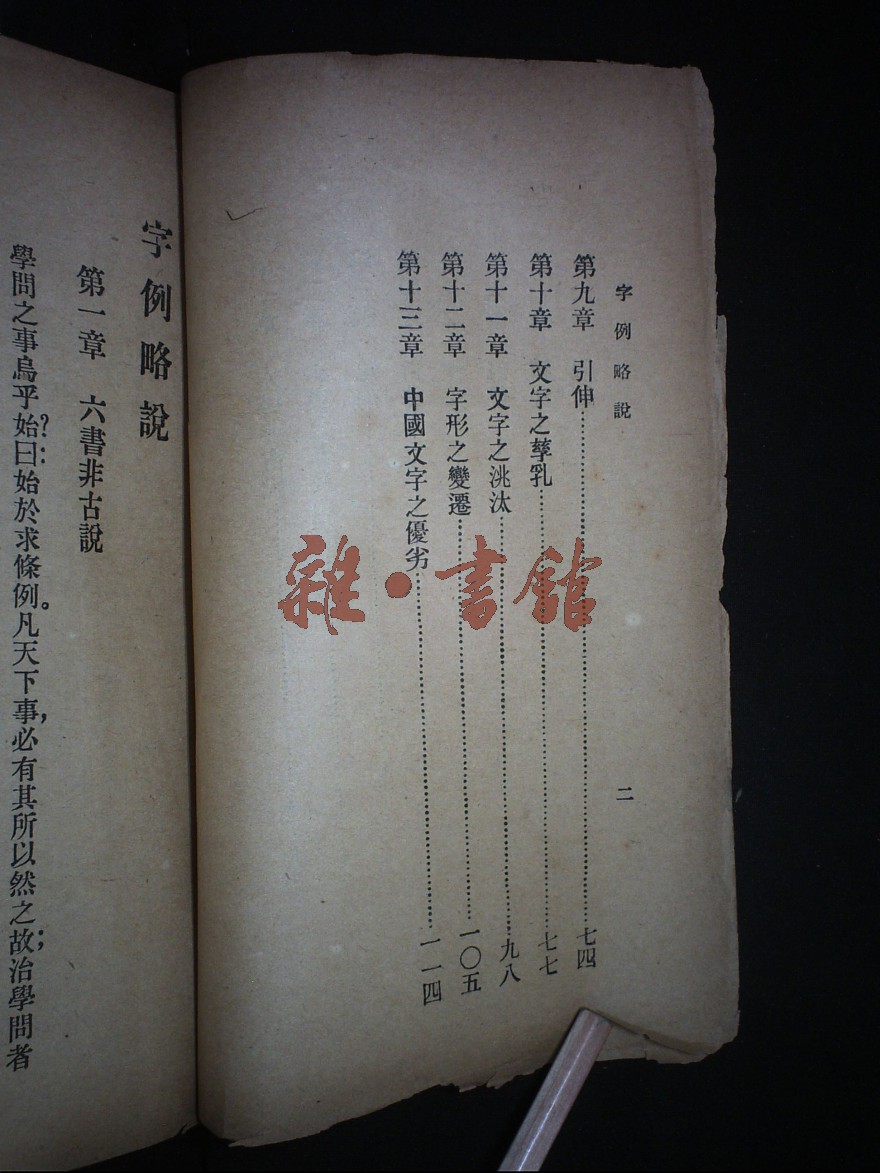 字例略說
二
第九章　引伸……七四
第十章　文字之孳乳……七七
第十一章　文字之洮汰……九八
第十二章　字形之變遷……一〇五
第十三章　中國文字之優劣……一一四
雜·書館
字例略說
第一章　六書非古說
學問之事烏乎始？：曰始於求條例。凡天下事，必有其所以然之故；治學問者